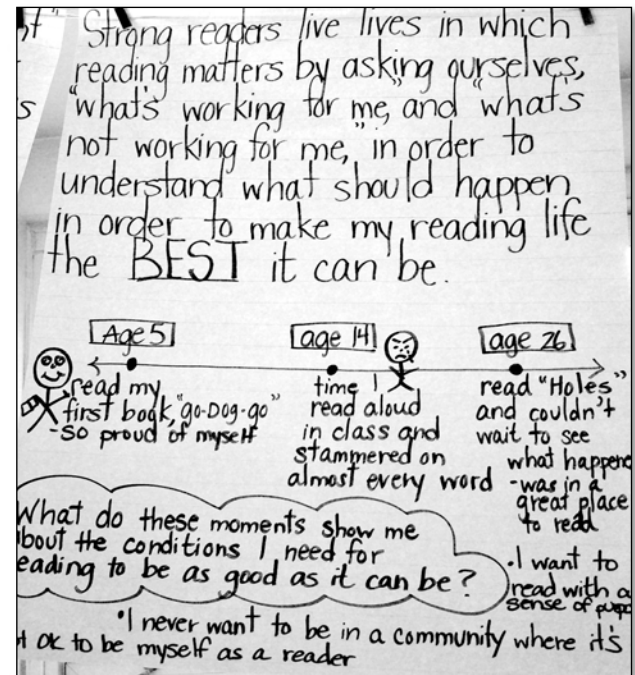 Strong readers live lives in which
reading matters by asking ourselves,
"what's working for me," and "what's
not working for me," in order to
understand what should happen
in order to make my reading life
the BEST it can be.
Age 5
age 14
age 26
read my
first book, "go-Dog-go"
-so proud of myself
time I
read aloud
in class and
stammered on
almost every word
read "Holes"
and couldn't
wait to see
what happene
-was in a
great place
to read
What do these moments show me
bout the conditions I need for
eading to be as good as it can be?
•I want to
read with a
sense of
•I never want to be in a community where it's
t ok to be myself as a reader